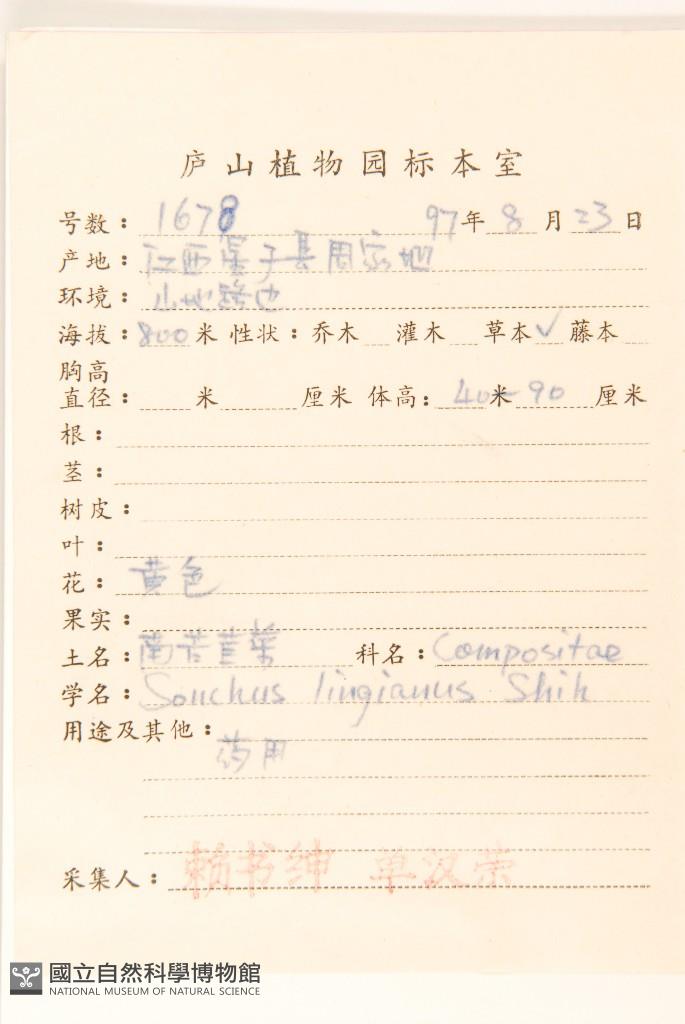 庐山植物园标本室
号数：1678 97年8月23日
产地：江西星子县周家地
环境：山地路边
海拔：800米 性状：乔木 灌木 草本✓ 藤本
胸高
直径： 米 厘米 体高：40米-90厘米
根：
茎：
树皮：
叶：
花：黄色
果实：
土名：南苦苣菜 科名：Compositae
学名：Sonchus lingianus Shih
用途及其他：
药用
采集人：赖书绅 单汉荣
國立自然科學博物館
NATIONAL MUSEUM OF NATURAL SCIENCE